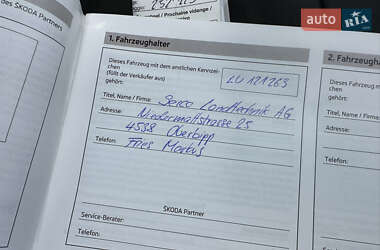 des ŠKODA Partners
/ Prochaine vidange /
auto RIA.com
1. Fahrzeughalter
Dieses Fahrzeug mit dem amtlichen Kennzei-
chen
(füllt der Verkäufer aus)
gehört:
LU 121263
Titel, Name / Firma: Serco Landtechnik AG
Adresse: Niedermattstrasse 25
4538 Oberbipp
Telefon: Fries Markus
ŠKODA Partner
Service-Berater:
Telefon:
2. Fahrzeugh
Dieses Fahrzeug
chen
(füllt der Verk
gehört:
Titel, Name
Adresse:
Telefon:
Service-
Telefon